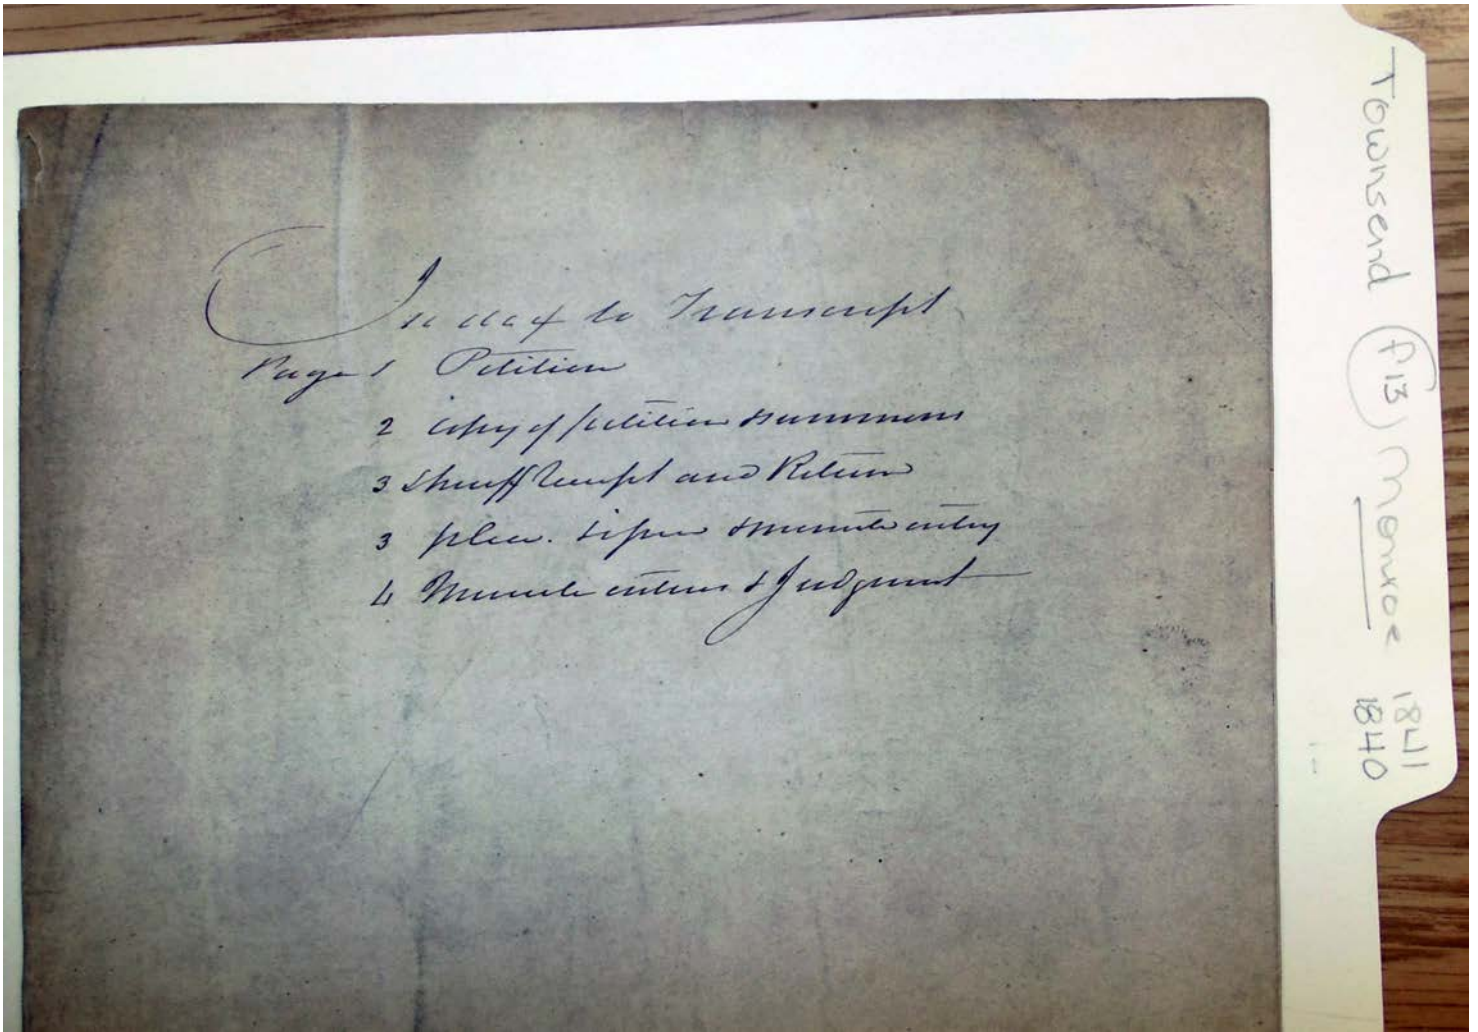 Index to Transcript
Page 1 Petition
2 Copy of petition & summons
3 Sheriff Receipt and Return
3 plea. & minute entry
4 Minute entries & Judgment
Townsend (P13) Monroe 1841
1840